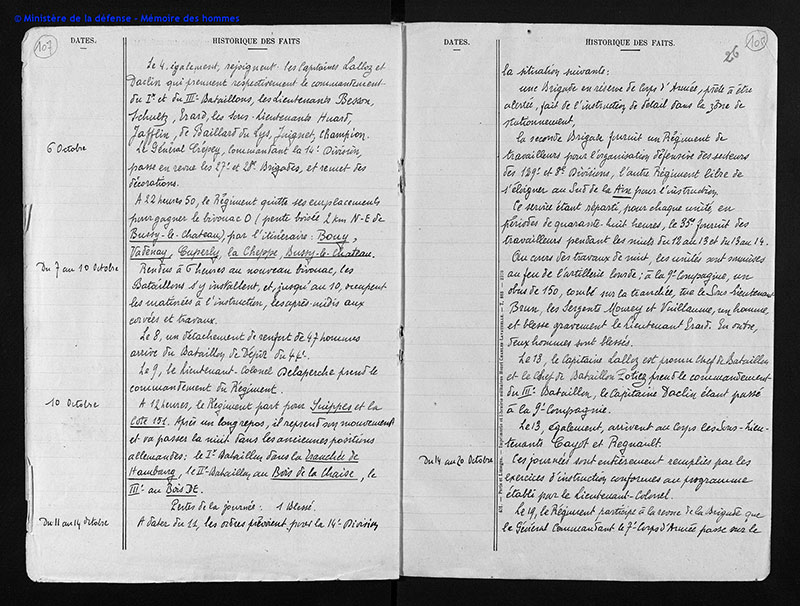 © Ministère de la défense - Mémoire des hommes
107
DATES.
HISTORIQUE DES FAITS.
Le 4, également, rejoignent : les Capitaines Lalloz et
Daclin qui prennent respectivement le commandement
du Ier et du IIIe Bataillons, les Lieutenants Besson,
Schultz, Erard, les Sous-Lieutenants Huard,
Jafflin, de Baillard du Lys, Juignet, Champion.
6 Octobre
Le Général Crépey, Commandant la 14e Division,
passe en revue les 27e et 28e Brigades, et remet des
décorations.
A 22 heures 50, le Régiment quitte ses emplacements
pour gagner le bivouac O (pente boisée 2 km N-E de
Bussy-le-Chateau), par l'itinéraire : Bouy,
Vadenay, Cuperly, la Cheppe, Bussy-le-Chateau.
Du 7 au 10 Octobre
Rendus à 6 heures au nouveau bivouac, les
Bataillons s'y installent, et, jusqu'au 10, occupent
les matinées à l'instruction, les après-midis aux
corvées et travaux.
Le 8, un détachement de renfort de 47 hommes
arrive du Bataillon de Dépôt du 44e.
Le 9, le Lieutenant-Colonel Delaperche prend le
commandement du Régiment.
10 Octobre
A 12 heures, le Régiment part pour Suippes et la
Cote 151. Après un long repos, il reprend son mouvement
et va passer la nuit dans les anciennes positions
allemandes : le Ier Bataillon dans la tranchée de
Hambourg, le IIe Bataillon au Bois de la Chaise, le
IIIe au Bois DE.
Pertes de la journée : 1 Blessé.
Du 11 au 14 Octobre
A dater du 11, les ordres prévoient pour la 14e Division
DATES.
HISTORIQUE DES FAITS.
26
108
la situation suivante :
une Brigade en réserve de Corps d'Armée, prête à être
alertée, fait de l'instruction de détail dans la zone de
stationnement.
la seconde Brigade fournit un Régiment de
travailleurs pour l'organisation défensive des secteurs
des 129e et 8e Divisions, l'autre Régiment libre de
s'éloigner au Sud de la Ain pour l'instruction.
Ce service étant réparti, pour chaque unité, en
périodes de quarante-huit heures, le 35e fournit des
travailleurs pendant les nuits du 12 au 13 et du 13 au 14.
Au cours des travaux de nuit, les unités sont soumises
au feu de l'artillerie lourde : à la 9e Compagnie, un
obus de 150, tombé sur la tranchée, tue le Sous-Lieutenant
Brun, les Sergents Mourey et Vuillaume, un homme,
et blesse gravement le Lieutenant Erard. En outre,
deux hommes sont blessés.
Le 13, le Capitaine Lalloz est promu Chef de Bataillon
et le Chef de Bataillon prend le commandement
du IIIe Bataillon, le Capitaine Daclin étant passé
à la 9e Compagnie.
Le 13, également, arrivent au Corps les Sous-Lieu-
tenants Cayot et Regnault.
Du 14 au 20 Octobre
Ces journées sont entièrement remplies par les
exercices d'instruction conformes au programme
établi par le Lieutenant-Colonel.
Le 19, le Régiment participe à la revue de la Brigade que
le Général Commandant le 7e Corps d'Armée passe sur le